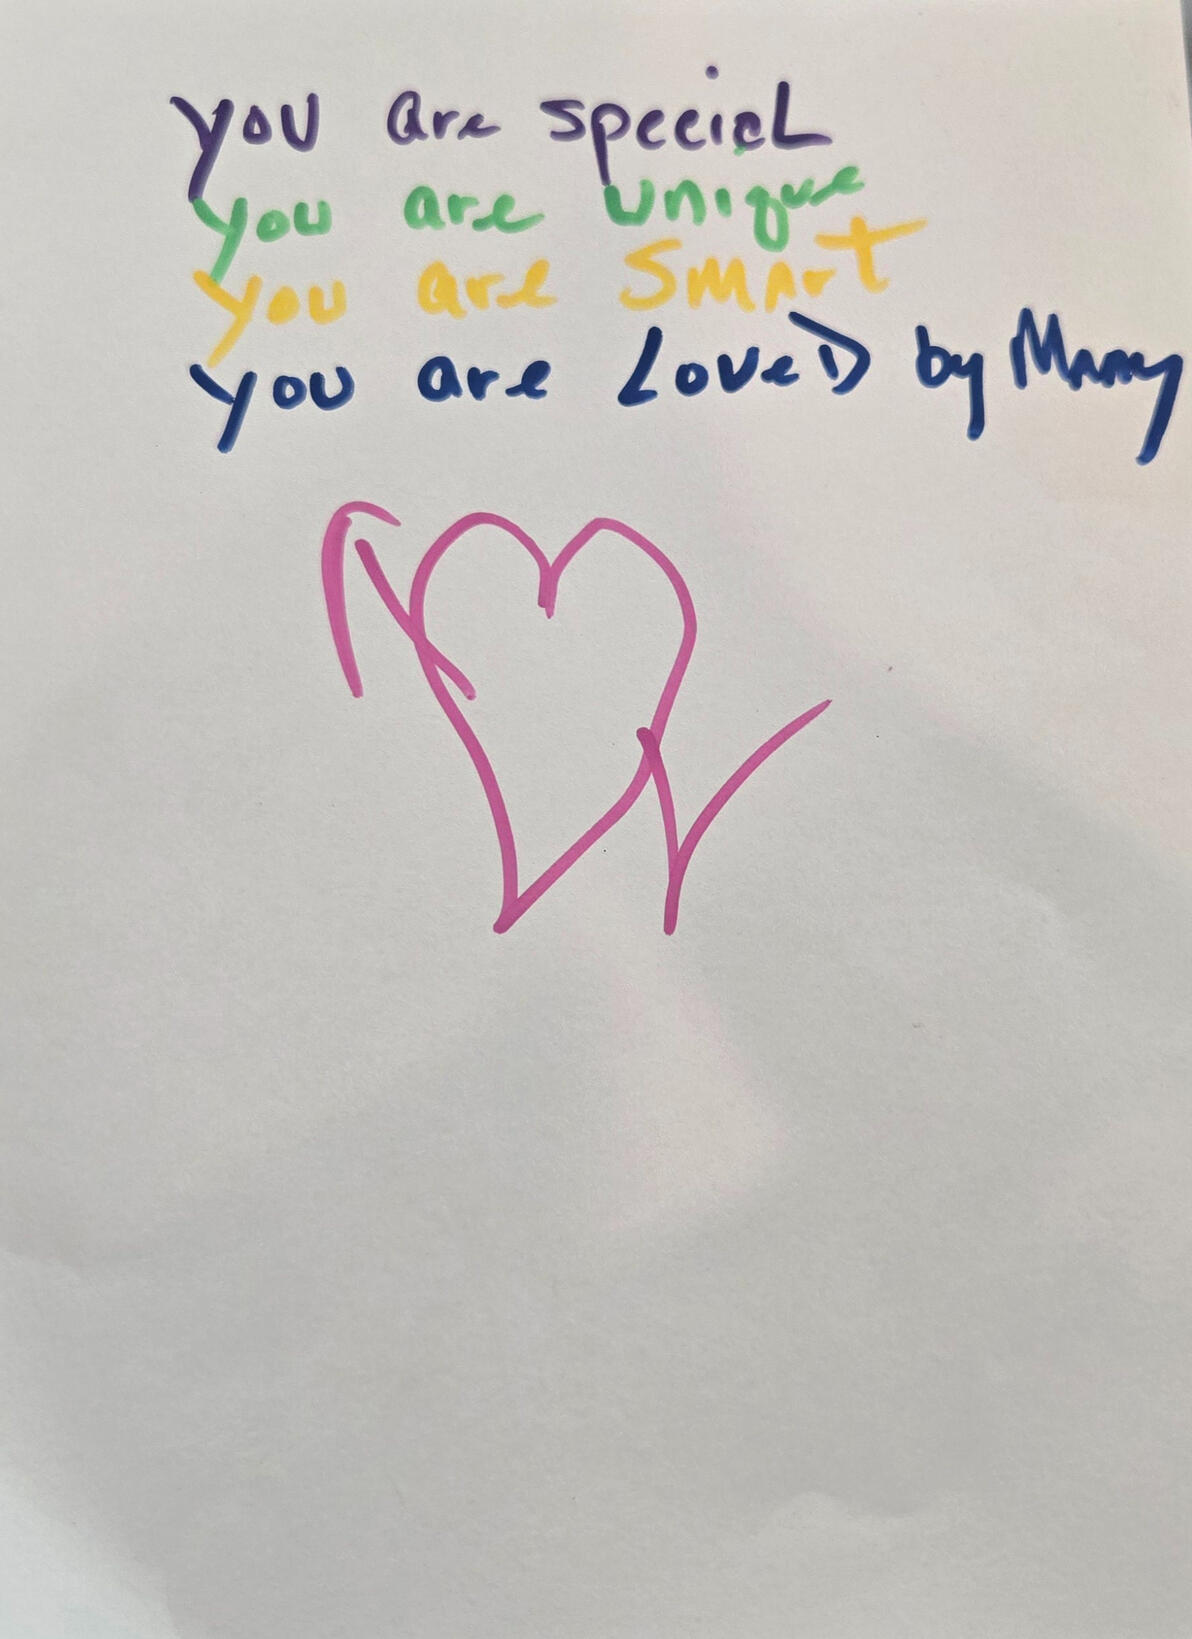 you are special
you are unique
you are Smart
you are LoveD by Many